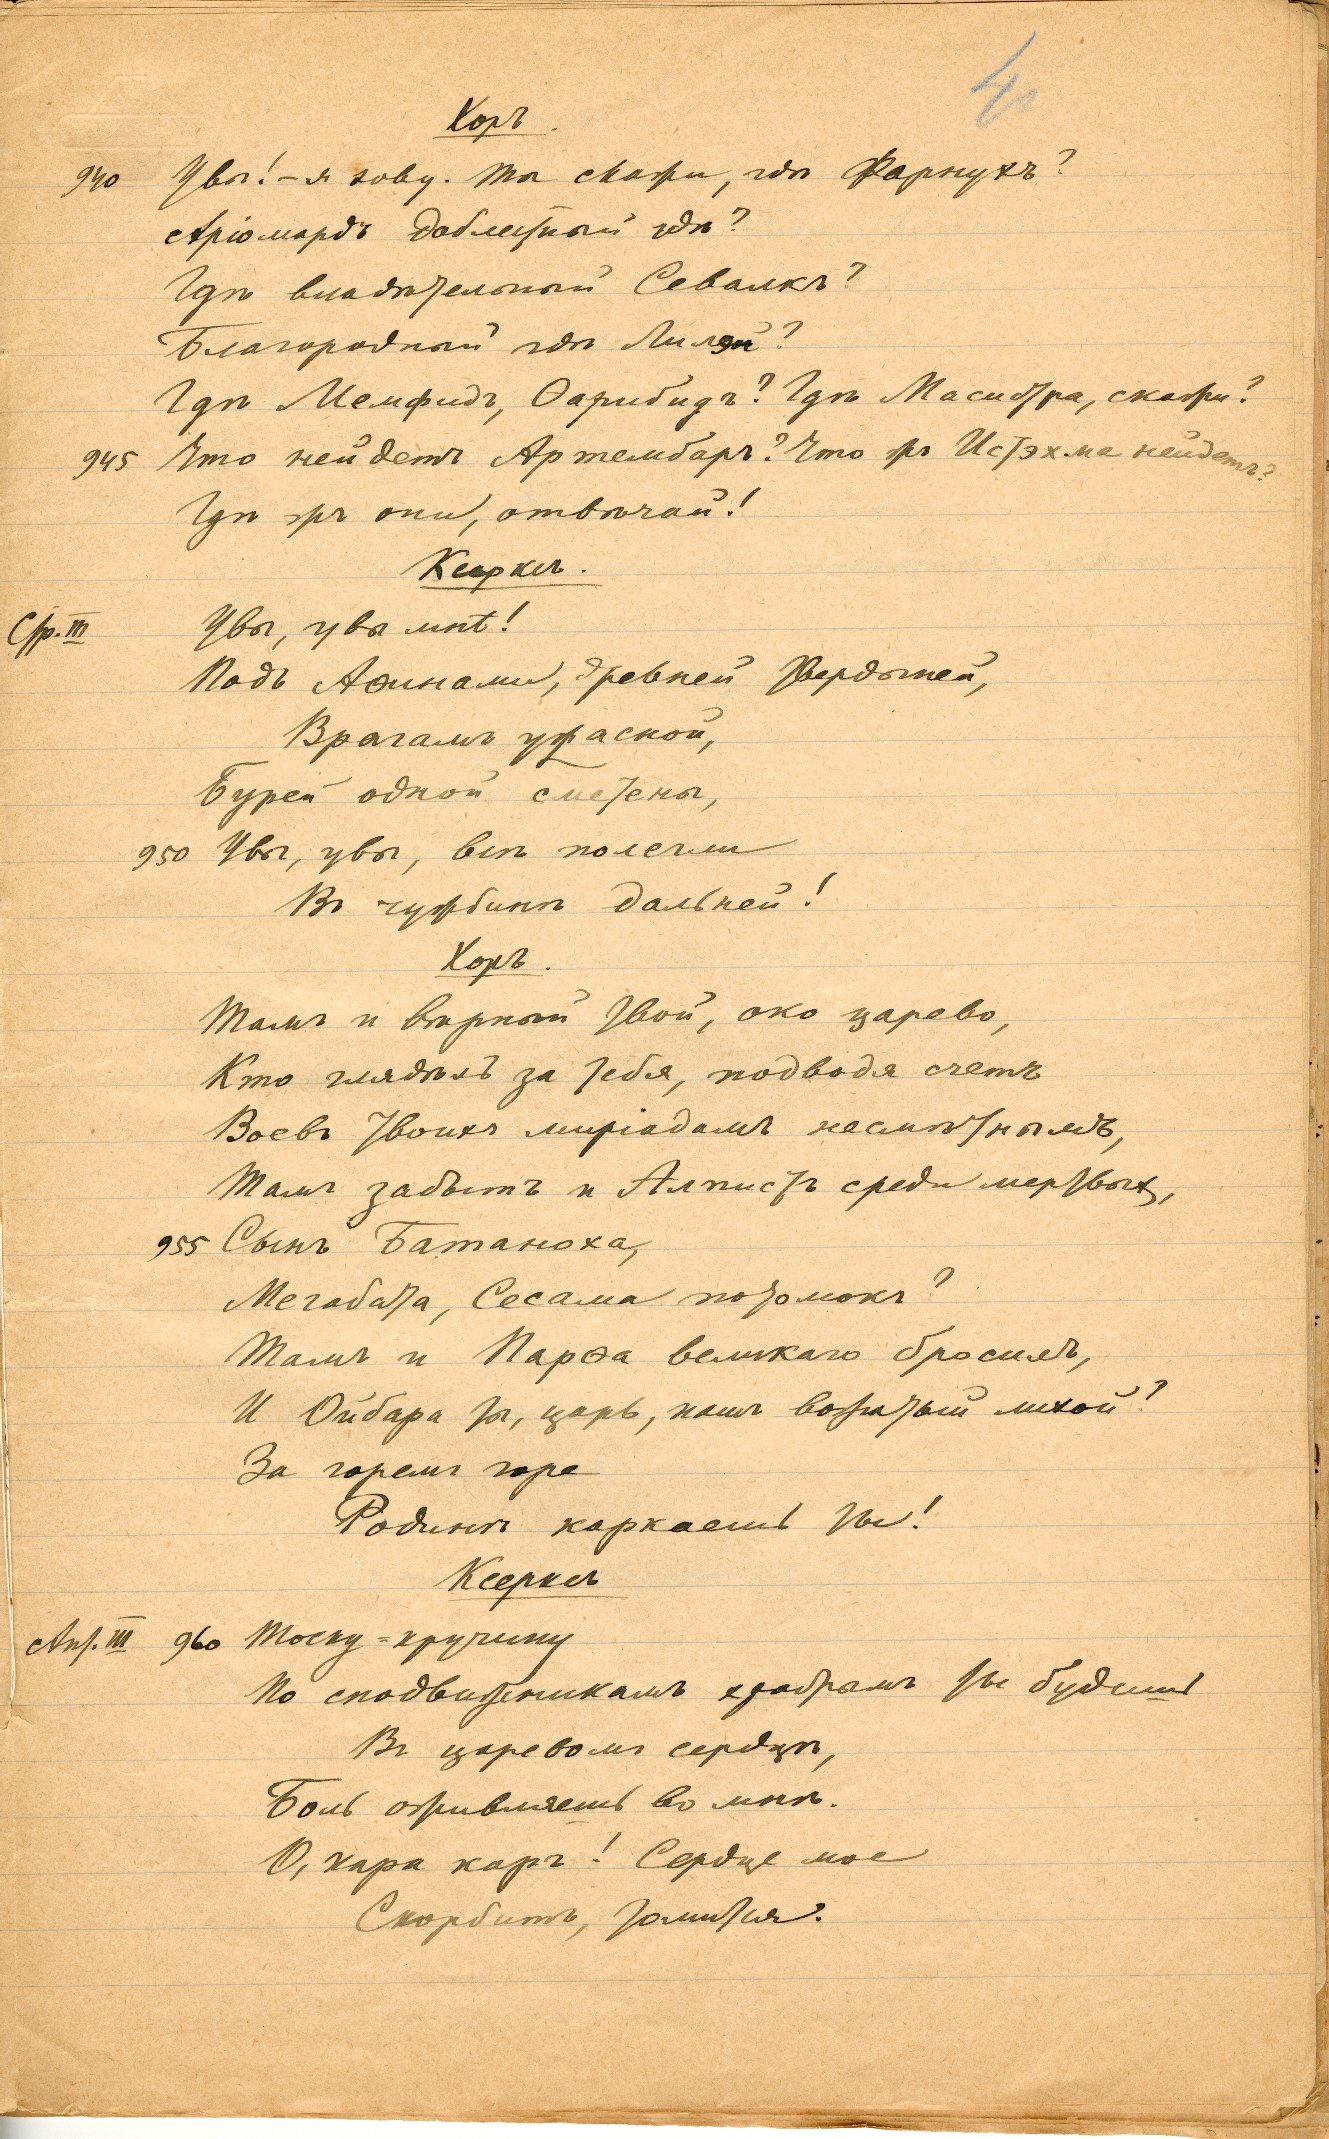 40
Хоръ.
940 Увы! – я зову. Ты скажи, гдѣ Фарнухъ?
Аріомардъ доблестный гдѣ?
Гдѣ владѣтельный Севалкъ?
Благородный гдѣ Лилэй?
Гдѣ Мемфидъ, Ѳарибидъ? Гдѣ Масистра, скажи?
945 Что нейдетъ Артембаръ? Что жъ Истэхма нейдетъ?
Гдѣ жъ они, отвѣчай!
Ксерксъ.
Стр. III Увы, увы мнѣ!
Подъ Аѳинами, древней твердыней,
Врагамъ ужасной,
Бурей одной сметены,
950 Увы, увы, всѣ полегли
Въ чужбинѣ дальней!
Хоръ.
Тамъ и вѣрный твой, око царево,
Кто глядѣлъ за тебя, подводя счетъ
Воевъ твоихъ миріадамъ несмѣтнымъ,
Тамъ забытъ и Алпистъ среди мертвыхъ,
955 Сынъ Батаноха,
Мегабата, Сесама потомокъ?
Тамъ и Парѳа великаго бросилъ,
И Ойбара ты, царь, нашъ вожатый лихой?
За горемъ горе
Родинѣ каркаешь ты!
Ксерксъ
Ант. III 960 Тоску-кручину
По сподвижникамъ храбрымъ ты будишь
Въ царевомъ сердцѣ,
Боль оживляешь во мнѣ.
О, кара каръ! Сердце мое
Скорбитъ, томится.